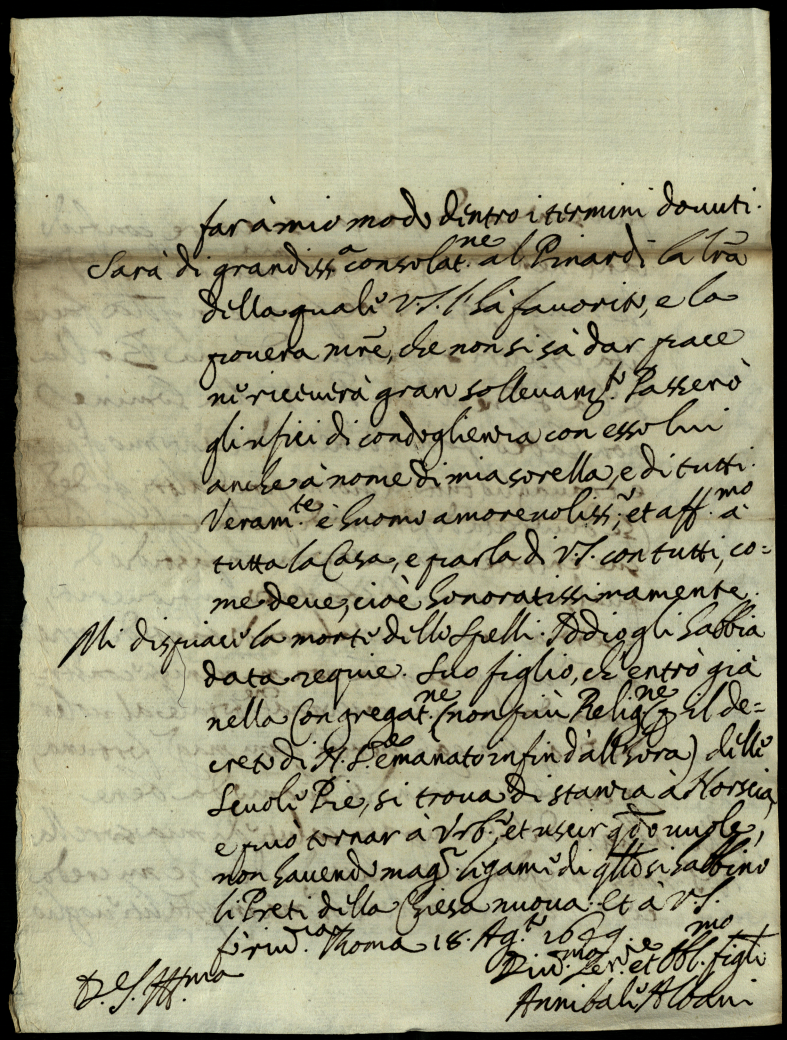 far à mio modo dentro i termini douuti.
Sarà di grandiss.a consolat.ne al Pinardi la lr̃a
della quale V.S. l'hà fauorito, e la
pouera mr̃e, che non si sà dar pace
ne riceuerà gran solleuam.to. Passerò
gli ufici di condoglienza con esso lui
anche à nome di mia sorella, e di tutti.
Veram.te è huomo amoreuoliss.o, et aff.mo à
tutta la Casa, e parla di V.S. con tutti, co=
me deue, cioè honoratissimamente.
Mi dispiace la morte dello Spelli. Iddio gli habbia
data requie. Suo figlio, ch'entrò già
nella Congregat.ne (non più Relig.ne p il de=
creto di N. S.re emanato infin d'all'hora) delle
Scuole Pie, si troua di stanza à Norscia,
e può tornar à Urb.o, et uscir q.do uuole,
non hauendo mag.r ligame di q.llo si habbino
li Preti della Chiesa nuoua. Et à V.S.
fò riu.za Roma 18. Ag.to 1649.
D. V. S. Ill.ma
Diu.mo Ser.re et Obl.mo figli.o
Annibale Albani